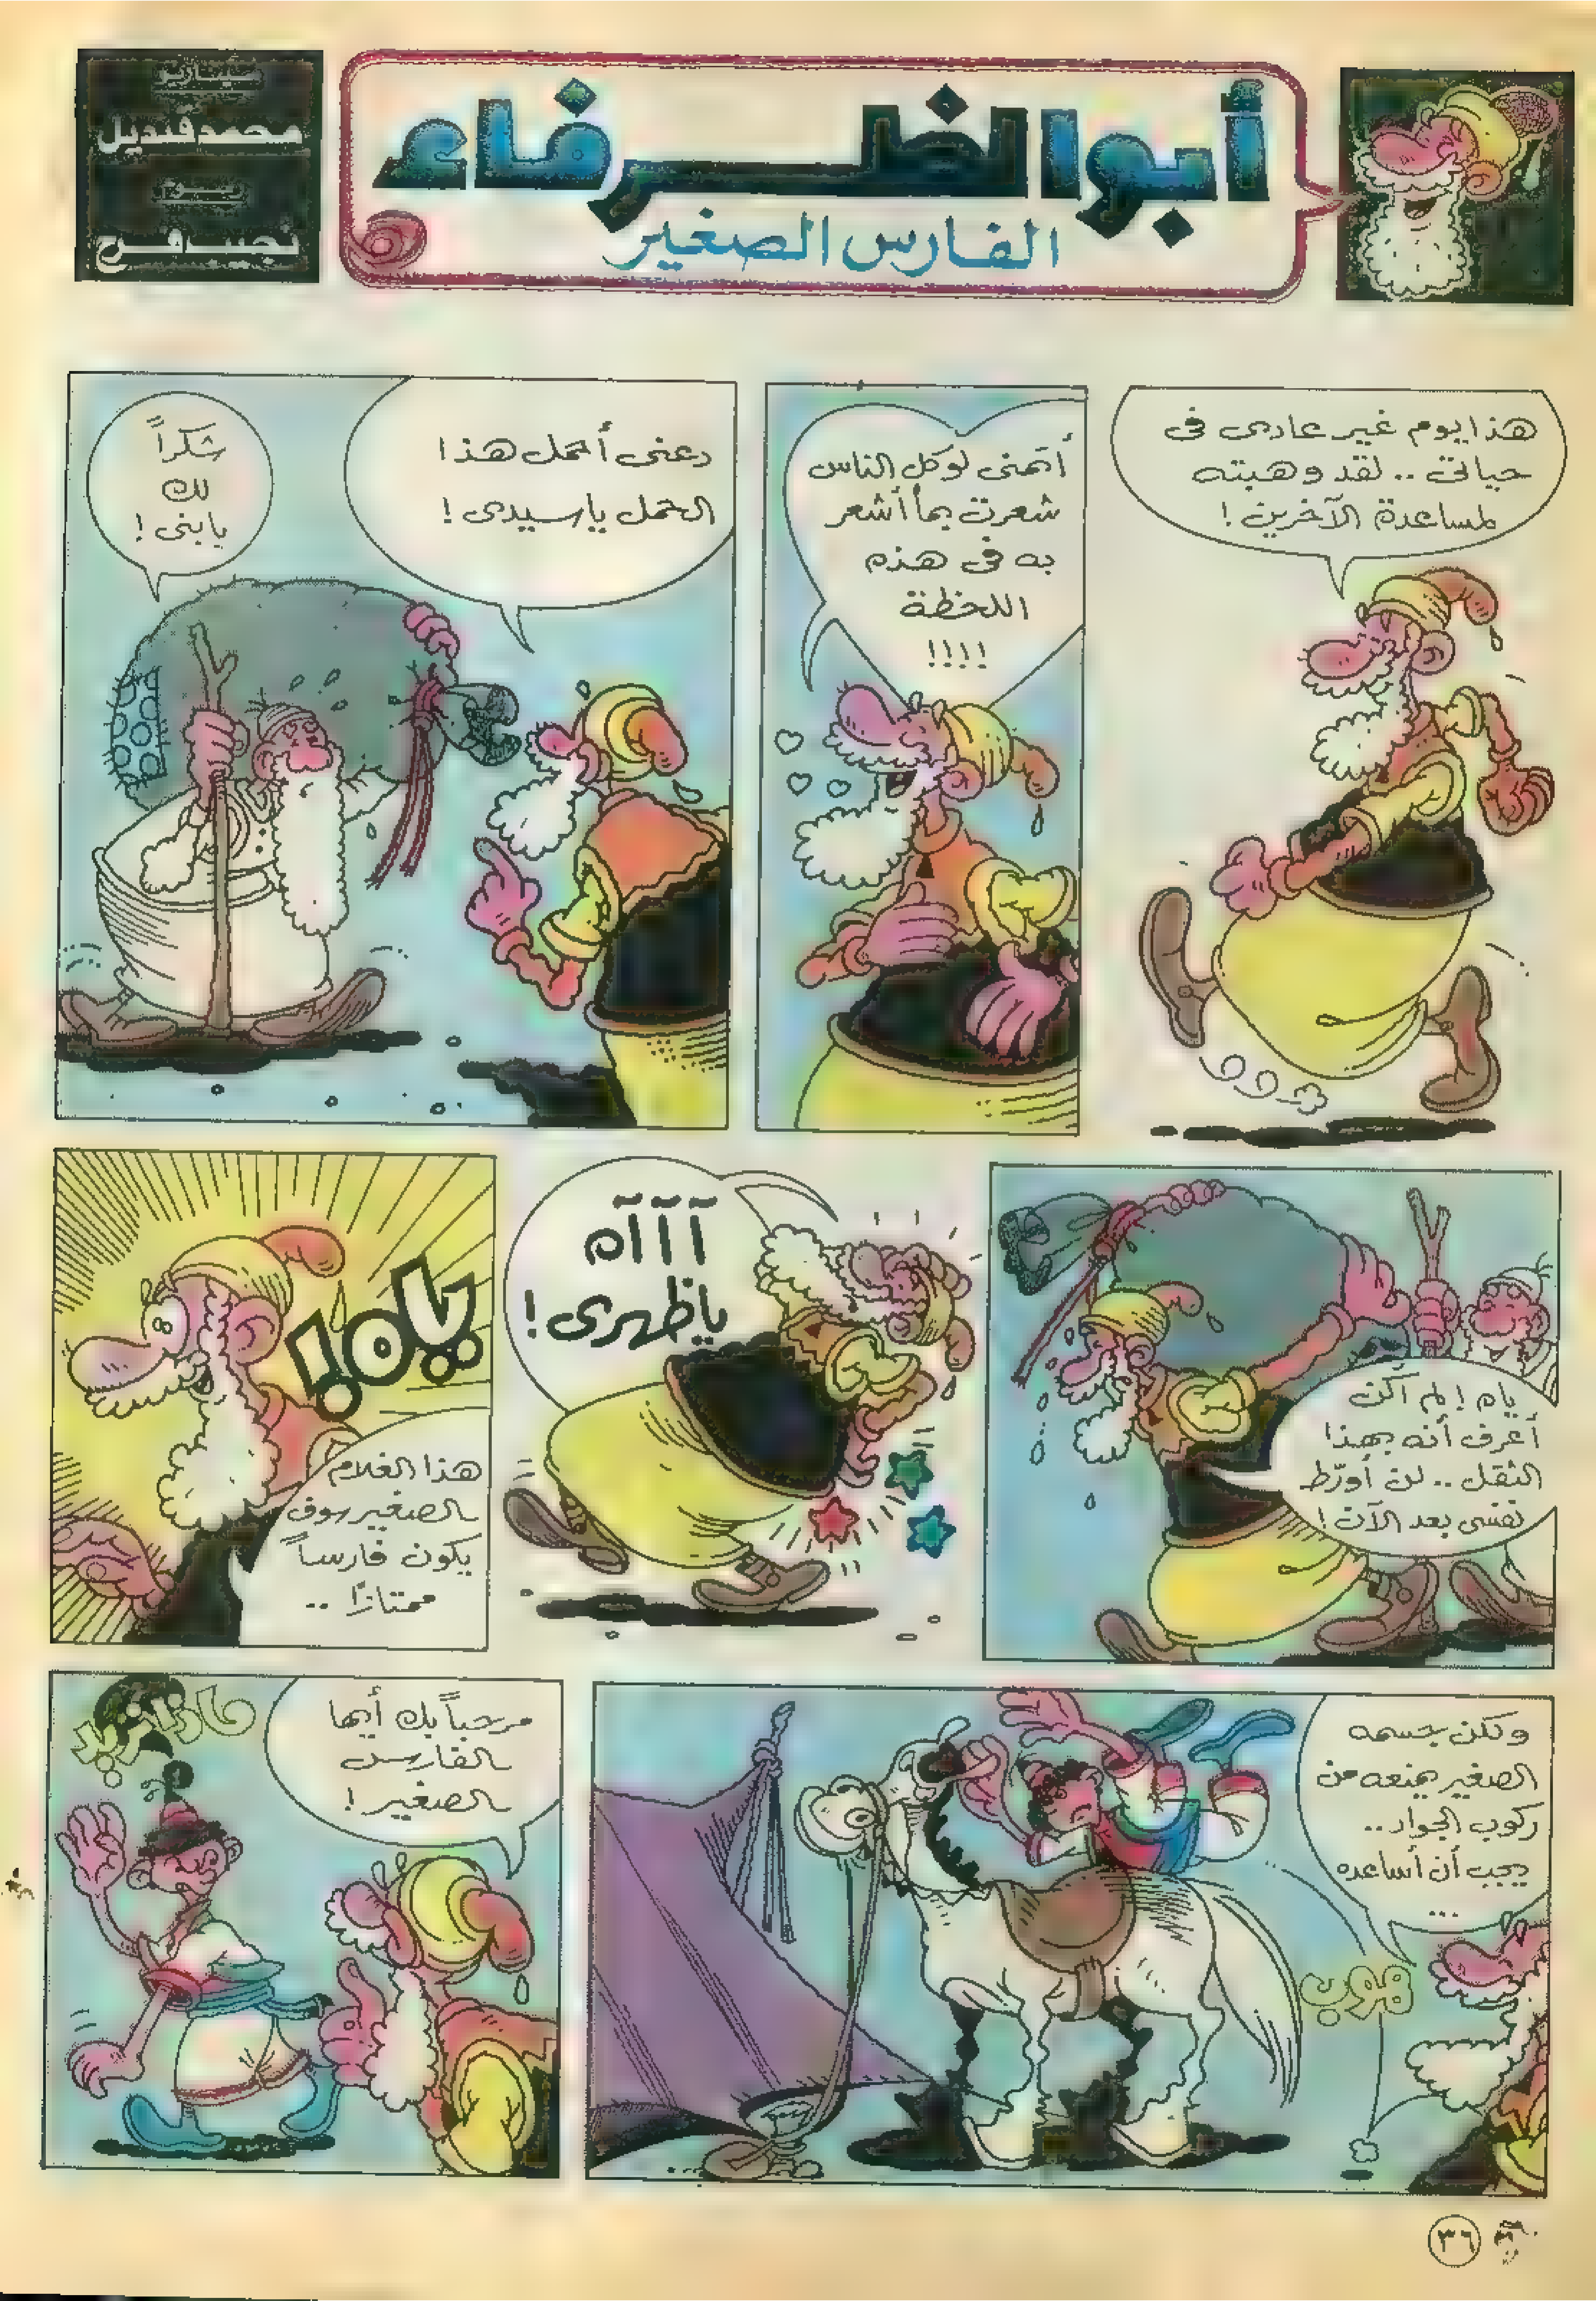 أبو الظرفاء
الفارس الصغير
سيناريو
محمد قنديل
رسوم
نجيب فرح
هذا يوم غير عادى فى
حياتى .. لقد وهبته
لمساعدة الآخرين !
أتمنى لو كل الناس
شعرت بما أشعر
به فى هذه
اللحظة
!!!!
دعنى أحمل هذا
الحمل يا سيدى !
شكراً
لك
يابنى !
ياه ! لم أكن
أعرف أنه بهذا
الثقل .. لن أورّط
نفسى بعد الآن !
آآآه
ياظهرى !
ياه!
هذا الغلام
الصغير سوف
يكون فارساً
ممتازاً ..
ولكن جسمه
الصغير يمنعه من
ركوب الجواد ..
يجب أن أساعده
...
هوب
مرحباً بك أيها
الفارس
الصغير !
ماذا تريد
٣٦